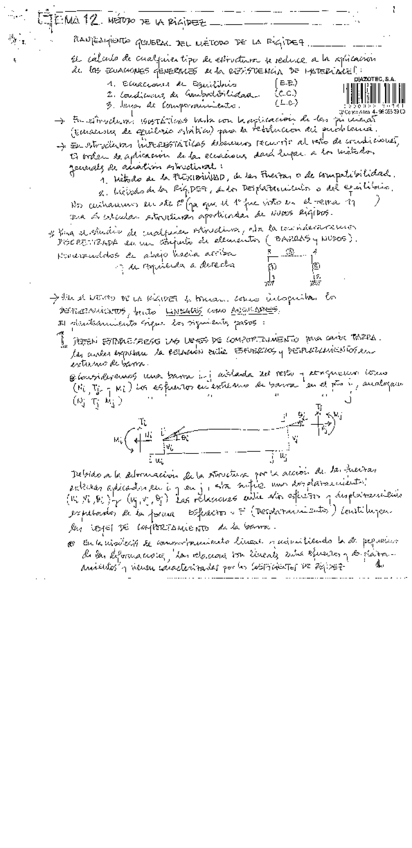 TEMA 12. MÉTODO DE LA RIGIDEZ
PLANTEAMIENTO GENERAL DEL MÉTODO DE LA RIGIDEZ
El cálculo de cualquier tipo de estructura se reduce a la aplicación
de las ECUACIONES GENERALES de la RESISTENCIA DE MATERIALES:
1. Ecuaciones de Equilibrio (E.E.)
2. Condiciones de Compatibilidad (C.C.)
3. Leyes de Comportamiento. (L.C.)
DIAZOTEC, S.A.
→ En estructuras ISOSTÁTICAS basta con la aplicación de las primeras
(Ecuaciones de equilibrio estático) para la resolución del problema.
→ En estructuras HIPERESTÁTICAS debemos recurrir al resto de condiciones,
El orden de aplicación de las ecuaciones dará lugar a los métodos
generales de análisis estructural:
1. Método de la FLEXIBILIDAD, de las Fuerzas o de Compatibilidad.
2. Método de la RIGIDEZ, de los Desplazamientos o del equilibrio.
Nos centramos en este 2º (ya que el 1º fue visto en el tema 11)
para calcular estructuras aporticadas de NUDOS RÍGIDOS.
Para el estudio de cualquier estructura, esta la consideraremos
DISCRETIZADA en un conjunto de elementos (BARRAS y NUDOS).
Numerándolos de abajo hacia arriba
y de izquierda a derecha
→ En el MÉTODO DE LA RIGIDEZ se toman como incógnitas los
DESPLAZAMIENTOS, tanto LINEALES como ANGULARES.
El planteamiento sigue los siguientes pasos:
1. DEBEN ESTABLECERSE LAS LEYES DE COMPORTAMIENTO para cada BARRA.
las cuales expresan la RELACIÓN entre ESFUERZOS y DESPLAZAMIENTOS en
extremo de barra.
Consideremos una barra i-j aislada del resto y tenemos como
(Ni Ti y Mi) los esfuerzos en extremo de barra en el pto i, análogamente
(Nj Tj Mj) " " " j
Debido a la deformación de la estructura por la acción de las fuerzas
exteriores aplicadas, en i y en j, esta sufre unos desplazamientos
(ui, vi, θi) y (uj, vj, θj) Las relaciones entre estos esfuerzos y desplazamientos
expresados de la forma Esfuerzos = F (Desplazamientos) constituyen
las LEYES DE COMPORTAMIENTO de la barra.
En la hipótesis de comportamiento lineal y admitiendo la de pequeñez
de las deformaciones, las relaciones son lineales entre esfuerzos y desplaza-
mientos y vienen caracterizadas por los COEFICIENTES DE RIGIDEZ